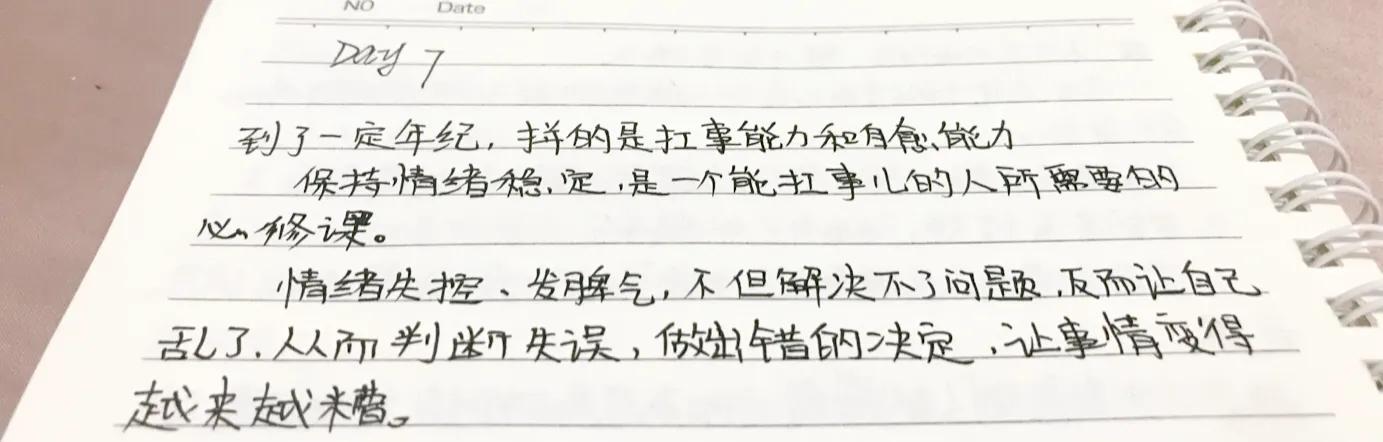 NO Date
Day 7
到了一定年纪，拼的是扛事能力和自愈能力
保持情绪稳定，是一个能扛事儿的人所需要的
必修课。
情绪失控、发脾气，不但解决不了问题，反而让自己
乱了，从而判断失误，做出错的决定，让事情变得
越来越糟。